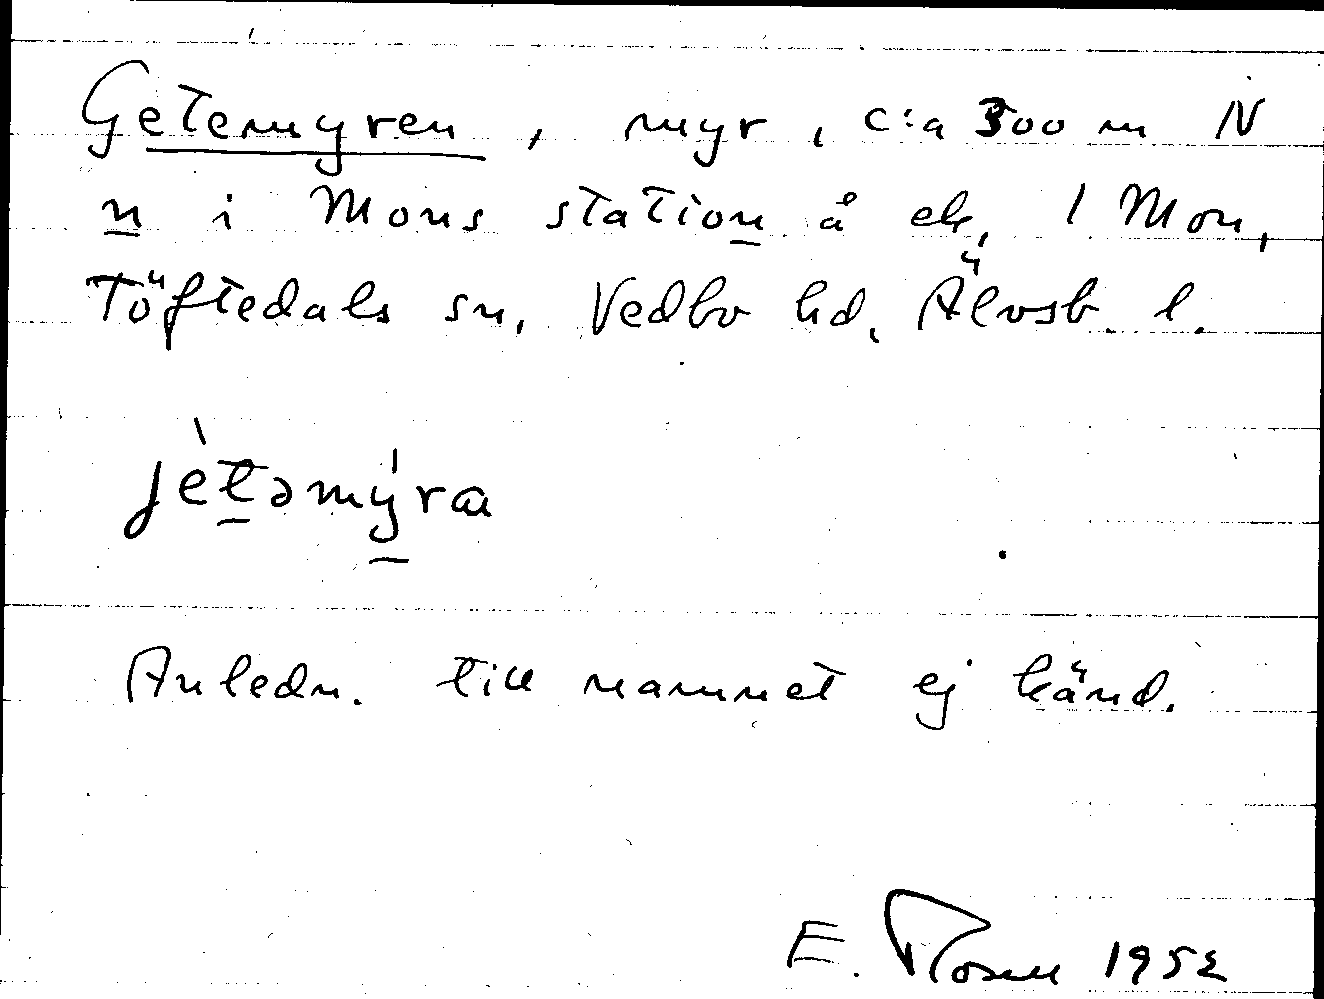 Getemyren, myr, c:a 300 m N
n i Mons station å ek. 1 Mon,
Töftedals sn, Vedbo hd, Älvsb. l.
jètəmýra
Anledn. till namnet ej känd.
E. Rosen 1952